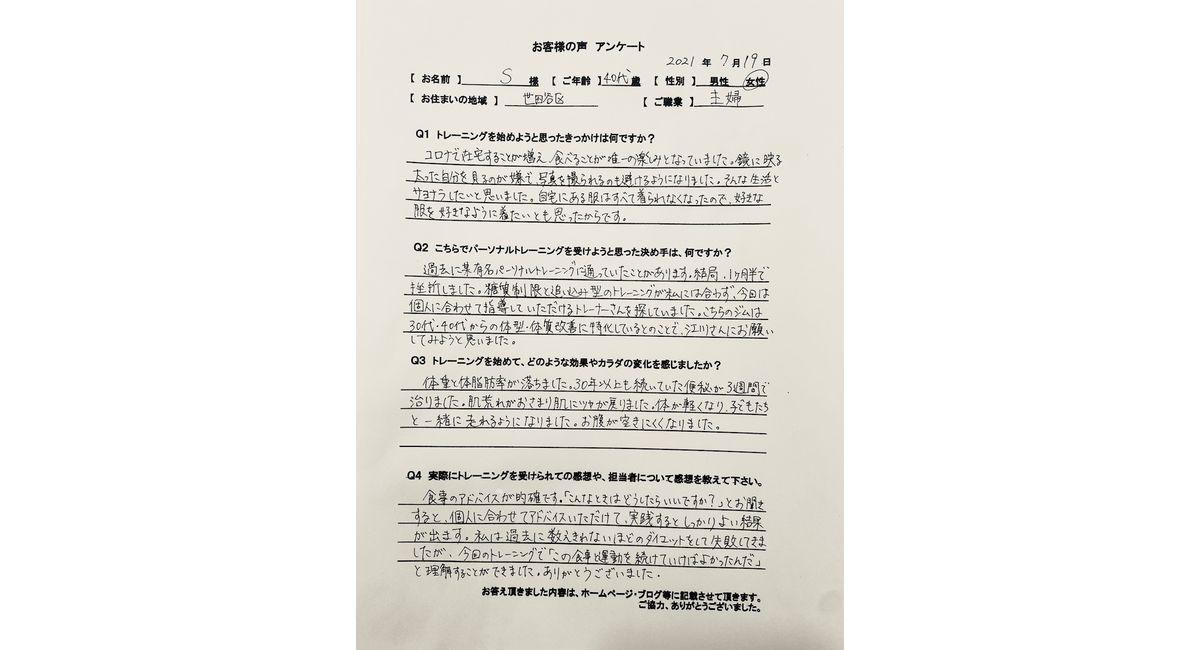 お客様の声 アンケート
2021 年 7 月 19 日
【 お名前 】 S 様 【 ご年齢 】 40代 歳 【 性別 】 男性 女性
【 お住まいの地域 】 世田谷区 【 ご職業 】 主婦
Q1 トレーニングを始めようと思ったきっかけは何ですか？
コロナで在宅することが増え、食べることが唯一の楽しみとなっていました。鏡に映る
太った自分を見るのが嫌で、写真を撮られるのも避けるようになりました。そんな生活と
サヨナラしたいと思いました。自宅にある服はすべて着られなくなったので、好きな
服を好きなように着たいとも思ったからです。
Q2 こちらでパーソナルトレーニングを受けようと思った決め手は、何ですか？
過去に某有名パーソナルトレーニングに通っていたことがあります。結局、1ヶ月半で
挫折しました。糖質制限と追い込み型のトレーニングが私には合わず、今回は
個人に合わせて指導していただけるトレーナーさんを探していました。こちらのジムは
30代・40代からの体型・体質改善に特化しているとのことで、江川さんにお願い
してみようと思いました。
Q3 トレーニングを始めて、どのような効果やカラダの変化を感じましたか？
体重と体脂肪率が落ちました。30年以上も続いていた便秘が3週間で
治りました。肌荒れがおさまり肌にツヤが戻りました。体が軽くなり、子どもたち
と一緒に走れるようになりました。お腹が空きにくくなりました。
Q4 実際にトレーニングを受けられての感想や、担当者について感想を教えて下さい。
食事のアドバイスが的確です。「こんなときはどうしたらいいですか？」とお聞き
すると、個人に合わせてアドバイスいただけて、実践するとしっかりよい結果
が出ます。私は過去に数えきれないほどのダイエットをして失敗してきま
したが、今回のトレーニングで「この食事と運動を続けていけばよかったんだ」
と理解することができました。ありがとうございました。
お答え頂きました内容は、ホームページ・ブログ等に記載させて頂きます。
ご協力、ありがとうございました。